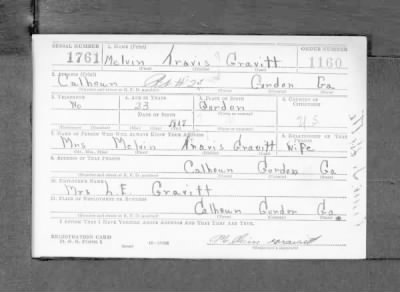 SERIAL NUMBER 1. NAME (Print) ORDER NUMBER
1761 Melvin Travis Gravitt 1160
(First) (Middle) (Last)
2. ADDRESS (Print)
Calhoun Rt #2 Gordon Ga
3. TELEPHONE 4. AGE IN YEARS 5. PLACE OF BIRTH 6. COUNTRY OF CITIZENSHIP
No 23 Gordon
DATE OF BIRTH
1917 U S
7. NAME OF PERSON WHO WILL ALWAYS KNOW YOUR ADDRESS 8. RELATIONSHIP OF THAT PERSON
Mrs Melvin Travis Gravitt Wife
9. ADDRESS OF THAT PERSON
Calhoun Gordon Ga
10. EMPLOYER'S NAME
Mrs L.E. Gravitt
11. PLACE OF EMPLOYMENT OR BUSINESS
Calhoun Gordon Ga.
I AFFIRM THAT I HAVE VERIFIED ABOVE ANSWERS AND THAT THEY ARE TRUE.
REGISTRATION CARD
D. S. S. Form 1
Melvin Gravitt